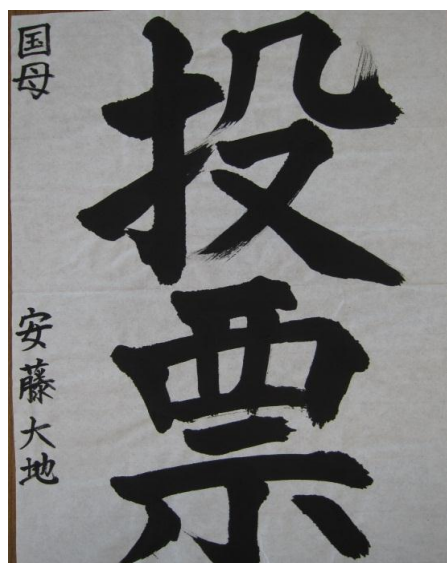 投票
国母
安藤大地